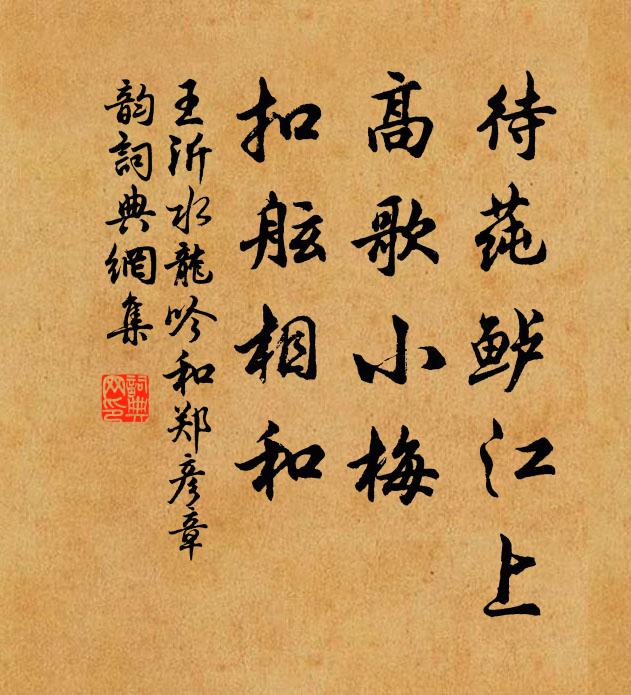 待莼鲈江上
高歌小梅
扣舷相和
王沂水龍吟和郑彦章
韵詞典網集
詞典网印